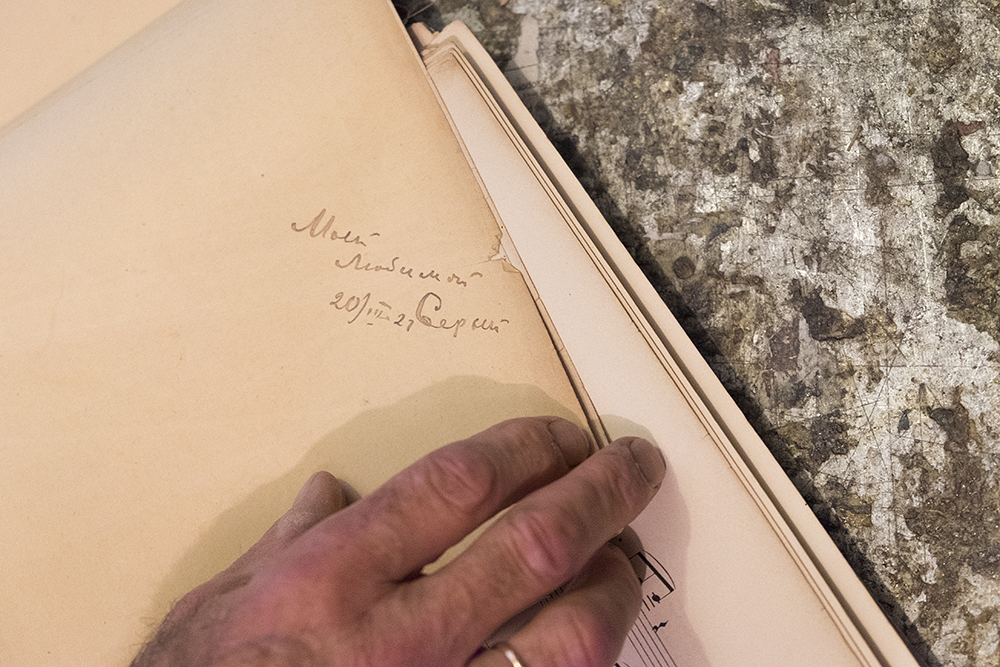 Моей
Любимой
20/III 21 Сергей